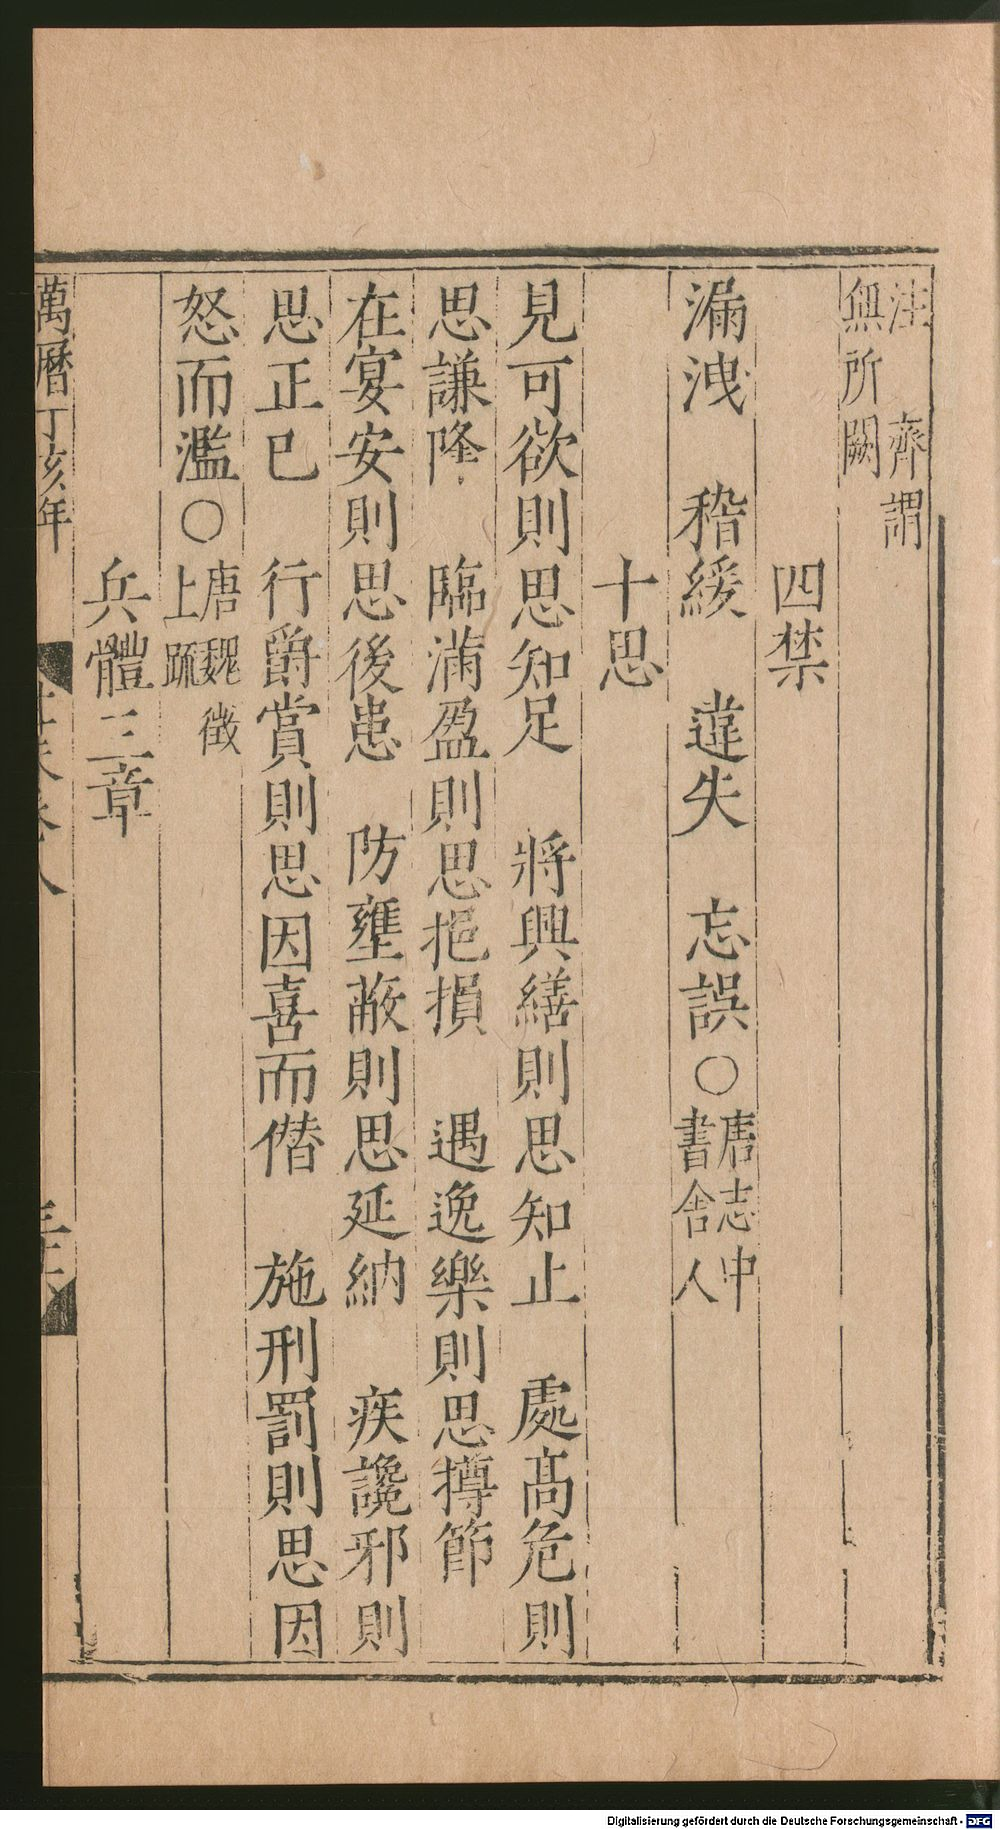 注　齊謂
無所闕
四禁
漏洩　稽緩　違失　忘誤○唐志中
書舍人
十思
見可欲則思知足　將興繕則思知止　處髙危則
思謙降　臨滿盈則思挹損　遇逸樂則思撙節
在宴安則思後患　防壅蔽則思延納　疾讒邪則
思正已　行爵賞則思因喜而僭　施刑罰則思因
怒而濫○唐魏徵
上疏
兵體三章
萬曆丁亥年
Digitalisierung gefördert durch die Deutsche Forschungsgemeinschaft - DFG